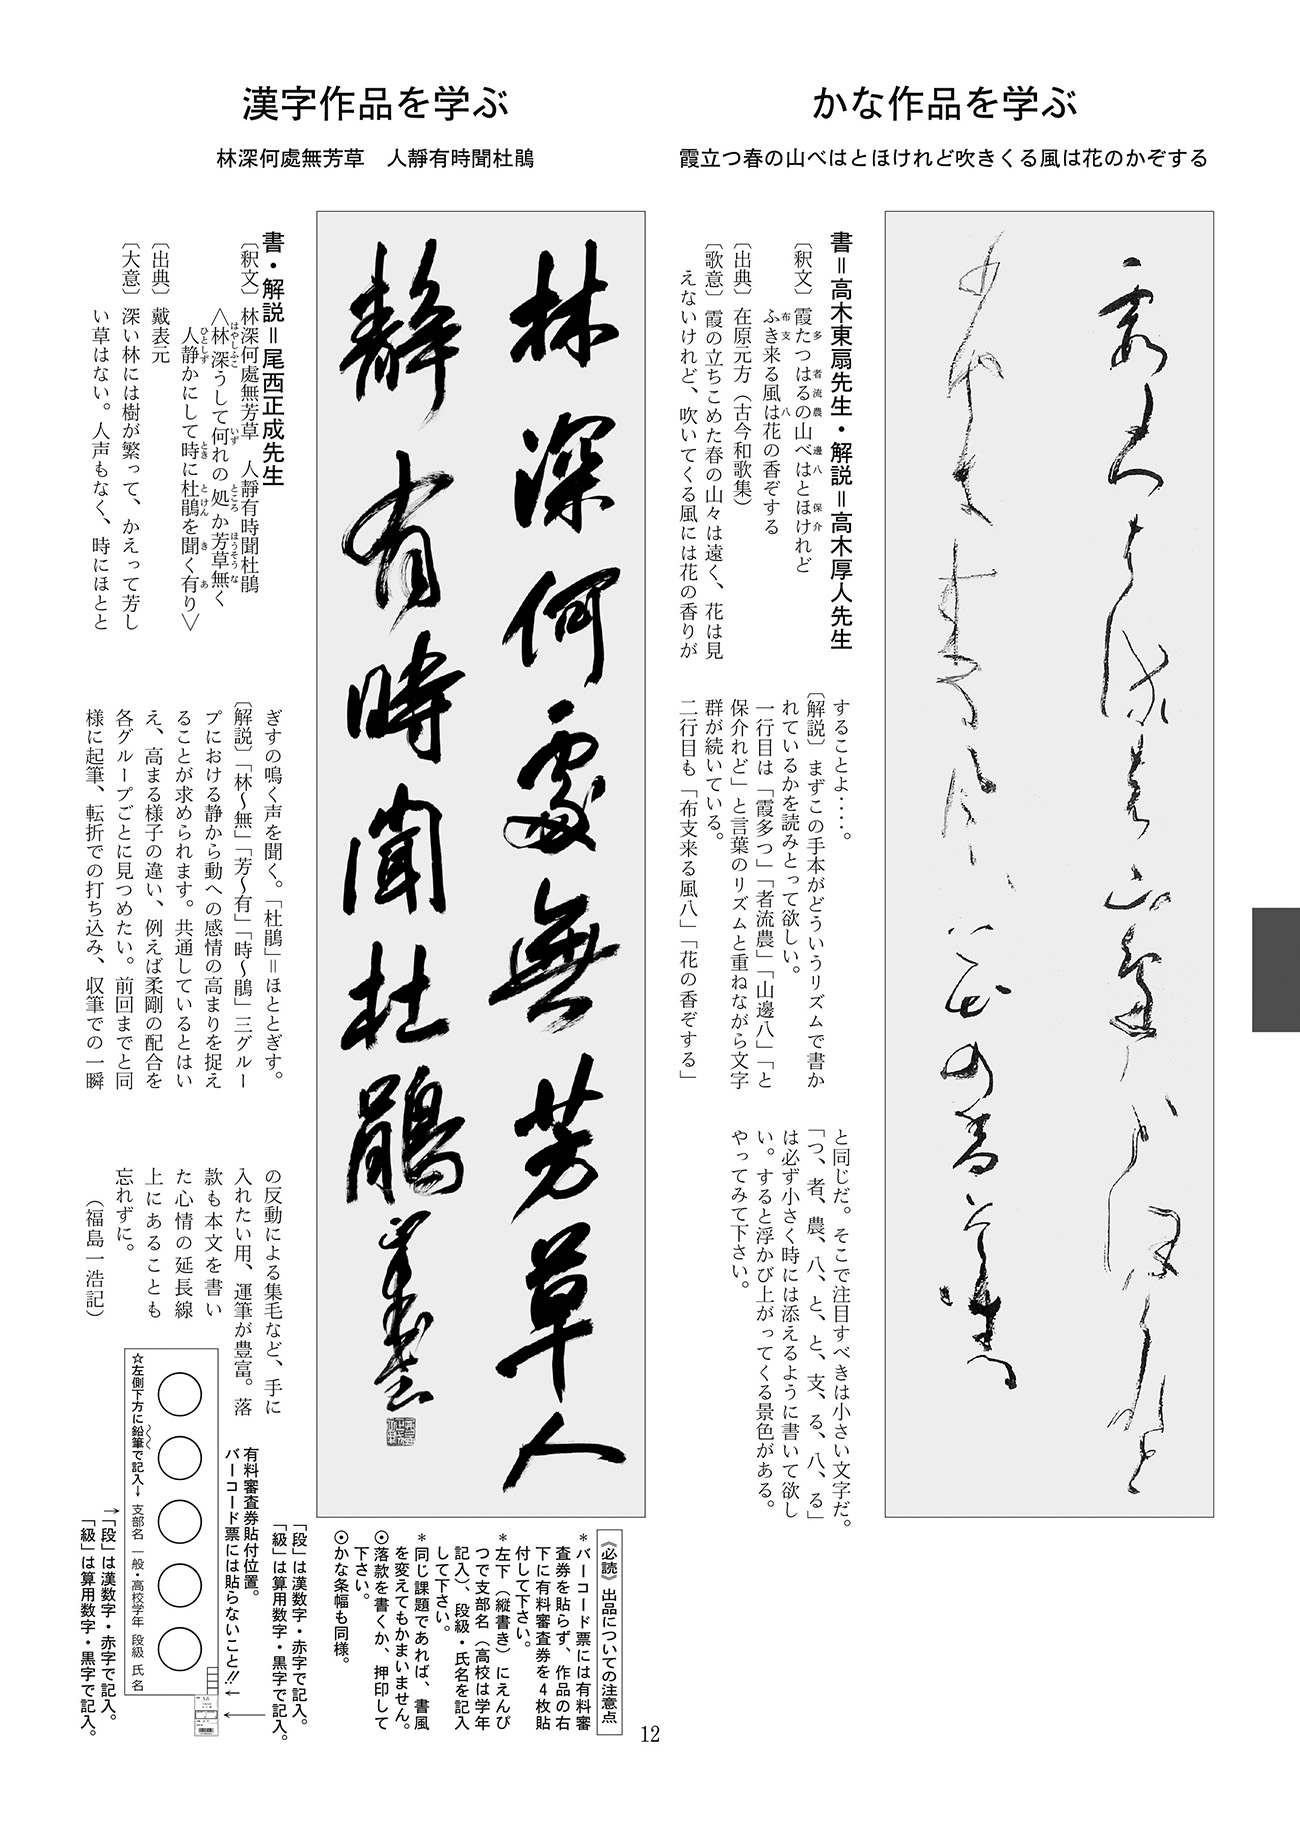 かな作品を学ぶ
霞立つ春の山べはとほけれど吹きくる風は花のかぞする
書＝高木東扇先生・解説＝高木厚人先生
〔釈文〕霞たつはるの山べはとほけれど
多 者流農 邊八 保介
ふき来る風は花の香ぞする
布支 八
〔出典〕在原元方（古今和歌集）
〔歌意〕霞の立ちこめた春の山々は遠く、花は見
えないけれど、吹いてくる風には花の香りが
することよ‥‥。
〔解説〕まずこの手本がどういうリズムで書か
れているかを読みとって欲しい。
一行目は「霞多つ」「者流農」「山邊八」「と
保介れど」と言葉のリズムと重ねながら文字
群が続いている。
二行目も「布支来る風八」「花の香ぞする」
と同じだ。そこで注目すべきは小さい文字だ。
「つ、者、農、八、と、と、支、る、八、る」
は必ず小さく時には添えるように書いて欲し
い。すると浮かび上がってくる景色がある。
やってみて下さい。
漢字作品を学ぶ
林深何處無芳草　人靜有時聞杜鵑
林深何處無芳草人
靜有時聞杜鵑
書・解説＝尾西正成先生
〔釈文〕林深何處無芳草　人靜有時聞杜鵑
＜林深うして何れの処か芳草無く
はやしふこ いず ところ ほうそうな
人静かにして時に杜鵑を聞く有り＞
ひとしず とき とけん き あ
〔出典〕戴表元
〔大意〕深い林には樹が繁って、かえって芳し
い草はない。人声もなく、時にほとと
ぎすの鳴く声を聞く。「杜鵑」＝ほととぎす。
〔解説〕「林〜無」「芳〜有」「時〜鵑」三グルー
プにおける静から動への感情の高まりを捉え
ることが求められます。共通しているとはい
え、高まる様子の違い、例えば柔剛の配合を
各グループごとに見つめたい。前回までと同
様に起筆、転折での打ち込み、収筆での一瞬
の反動による集毛など、手に
入れたい用、運筆が豊富。落
款も本文を書い
た心情の延長線
上にあることも
忘れずに。
（福島一浩記）
《必読》出品についての注意点
＊バーコード票には有料審
査券を貼らず、作品の右
下に有料審査券を4枚貼
付して下さい。
＊左下（縦書き）にえんぴ
つで支部名（高校は学年
記入）、段級・氏名を記入
して下さい。
＊同じ課題であれば、書風
を変えてもかまいません。
⊙落款を書くか、押印して
下さい。
⊙かな条幅も同様。
「段」は漢数字・赤字で記入。
「級」は算用数字・黒字で記入。
有料審査券貼付位置。
バーコード票には貼らないこと!!←
☆左側下方に鉛筆で記入→ 支部名 一般・高校学年 段級 氏名
→「段」は漢数字・赤字で記入。
「級」は算用数字・黒字で記入。
12